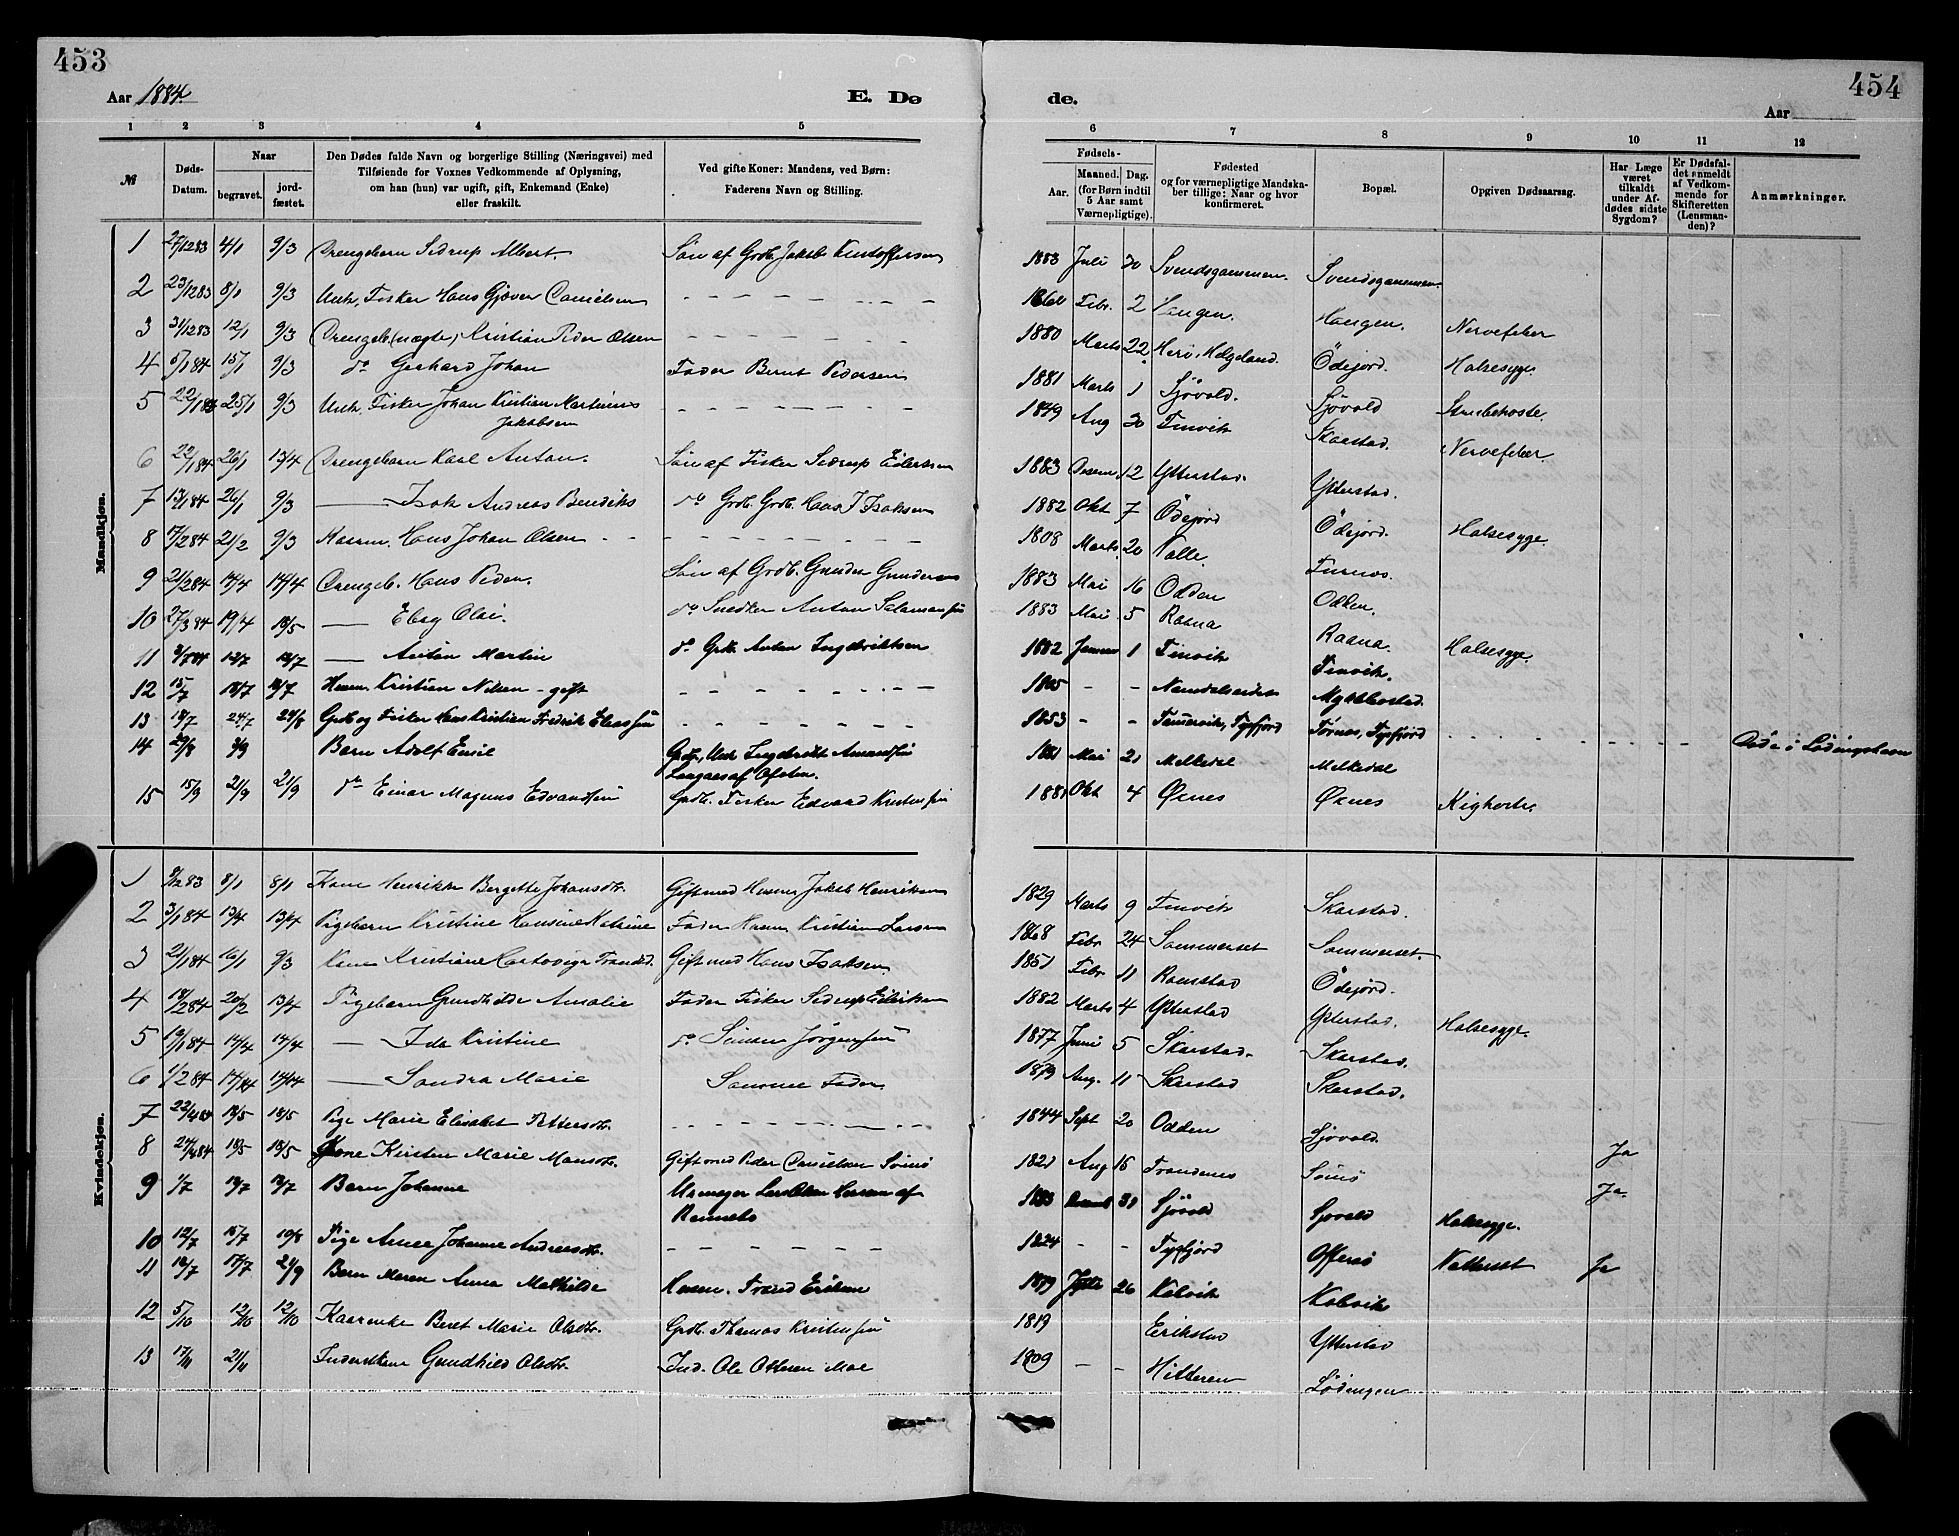 453
454
Aar 1884.
E. Dø
de.
Aar
1 2 3 4 5 6 7 8 9 10 11 12
№
Døds-Datum.
Naar
begravet.
jord-fæstet.
Den Dødes fulde Navn og borgerlige Stilling (Næringsvei) med
Tilføiende for Voxnes Vedkommende af Oplysning,
om han (hun) var ugift, gift, Enkemand (Enke)
eller fraskilt.
Ved gifte Koner: Mandens, ved Børn:
Faderens Navn og Stilling.
Fødsels-
Aar.
Maaned. Dag.
(for Børn indtil
5 Aar samt
Værnepligtige).
Fødested
og for værnepligtige Mandska-
ber tillige: Naar og hvor
konfirmeret.
Bopæl.
Opgiven Dødsaarsag.
Har Læge
været
tilkaldt
under Af-
dødes sidste
Sygdom?
Er Dødsfal-
det anmeldt
af Vedkom-
mende for
Skifteretten
(Lensman-
den)?
Anmærkninger.
Mandkjøn.
1 27/12 83 4/1 9/3 Drengebarn Sedrup Albert. Søn af Grdb. Jakob Kristoffersen 1883 Juli 30 Svendsgammen. Svendsgammen.
2 23/12 83 8/1 9/3 Unk. Fisker Hans Gjøver Danielsen Febr. 2 Haugen. Haugen. Nervefeber
3 31/12 83 12/1 9/3 Drengeb. (uægte) Kristian Peder Olsen 1880 Marts 22 Herø, Helgeland. Ödejord. Halsesyge
4 5/1 84 15/1 9/3 do Gerhard Johan Fader Bernt Pedersen 1881 Marts 1 Sjövold. Sjövold Strubehoste.
5 22/1 25/1 9/3 Unk. Fisker Johan Kristian Martinus Jakobsen 1849 Aug 30 Finvik Skarstad. Nervefeber
6 22/1 84 26/1 13/4 Drengebarn Karl Anton. Søn af Fisker Sedrup Eilertsen 1883 Decem. 12 Ytterstad. Ytterstad.
7 13/1 84 26/1 9/3 — Isak Andreas Bendiks do Grdb. Grdb. Hans J Isaksen 1882 Okt 7 Ödejord Ödejord. Halsesyge.
8 17/2 84 21/2 9/3 Kaarm. Hans Johan Olsen 1808 Marts 20 Valle.
9 21/2 84 14/4 14/4 Drengeb. Hans Peder. Søn af Grdb. Gunder Gundersen 1883 Mai 16 Odden Odden.
10 27/3 84 19/4 18/5 — Ebeg Olai. do Snedker Anton Salamonsen 1883 Mai 5 Raana Raana.
11 84 — Anton Martin do Grdb. Anton Ingebriktsen 1882 Januar 1 Finvik Finvik. Halsesyge.
12 15/7 Husm. Kristian Nilsen - gift - - Namdalseidet Myklebostad
13 18/7 24/7 24/8 Grdb og Fisker Hans Kristian Fredrik Eliassen 1853 - - Tømmervik, Tysfjord Tørnes, Tysfjord Døde i Lødingshavn
14 29/8 3/9 Barn Adolf Emil 1881 Mai 21 Melkedal Melkedal
15 15/9 21/9 21/9 do Einar Magnus Edvardsen Grdb. Fisker Edvard Kristensen 1881 Okt 4 Øxnes Øxnes Kighoste.
Kvindekjøn.
1 83 8/1 8/1 Kone Henrikke Bergette Johansdtr. Gift med Husm. Jakob Henriksen 1829 Marts 9 Finvik Skarstad.
2 3/1 84 13/4 13/4 Pigebarn Kristine Hansine Katrine Fader Husm. Kristian Larsen 1868 Febr. 24 Sommerset Sommerset.
3 21/1 84 16/1 9/3 Kone Kristiane Hartvige Trondsd. Gift med Hans Isaksen 1851 Febr. 11 Ramstad Ödejord.
4 18/2 84 20/2 13/4 Pigebarn Gunhilde Amalie Fader Fisker Sedrup Eilertsen 1882 Marts 4 Ytterstad Ytterstad. Halsesyge.
5 84 14/4 14/4 — Ida Kristine do Simon Jörgensen 1877 Juni 5 Skarstad. Skarstad.
6 1/2 84 14/4 14/4 — Sandra Marie Samme Fader 1879 Aug. 11 Skarstad Skarstad.
7 22/4 84 18/5 18/5 Pige Marie Elisabet Pettersdtr. 1844 Sept 20 Odden Sjövold.
8 27/4 84 18/5 18/5 Kone Kirsten Marie Mansdtr. Gift med Peder Danielsen 1821 Aug 15 Trondenes Ja
9 1/7 Barn Johanne 31 Sjövold Sjovold Halsesyge. Ja.
10 12/7 15/7 10/8 Pige Anne Johanne Andreasdtr. 1824 - - Tysfjord Offersø Ja
11 17/7 21/9 Barn Maren Anna Mathilde Husm. Trond Eriksen 1879 26 Kalvik Kalvik
12 5/10 12/10 12/10 Kaarenke Beret Marie Olsdtr. Grdb. Thomas Kristensen 1819 Erikstad Ytterstad
13 17/11 21/11 Inderstkone Gundhild Olsdtr. Ind. Ole Ottesen Moe 1809 - - Hitteren Lødingen